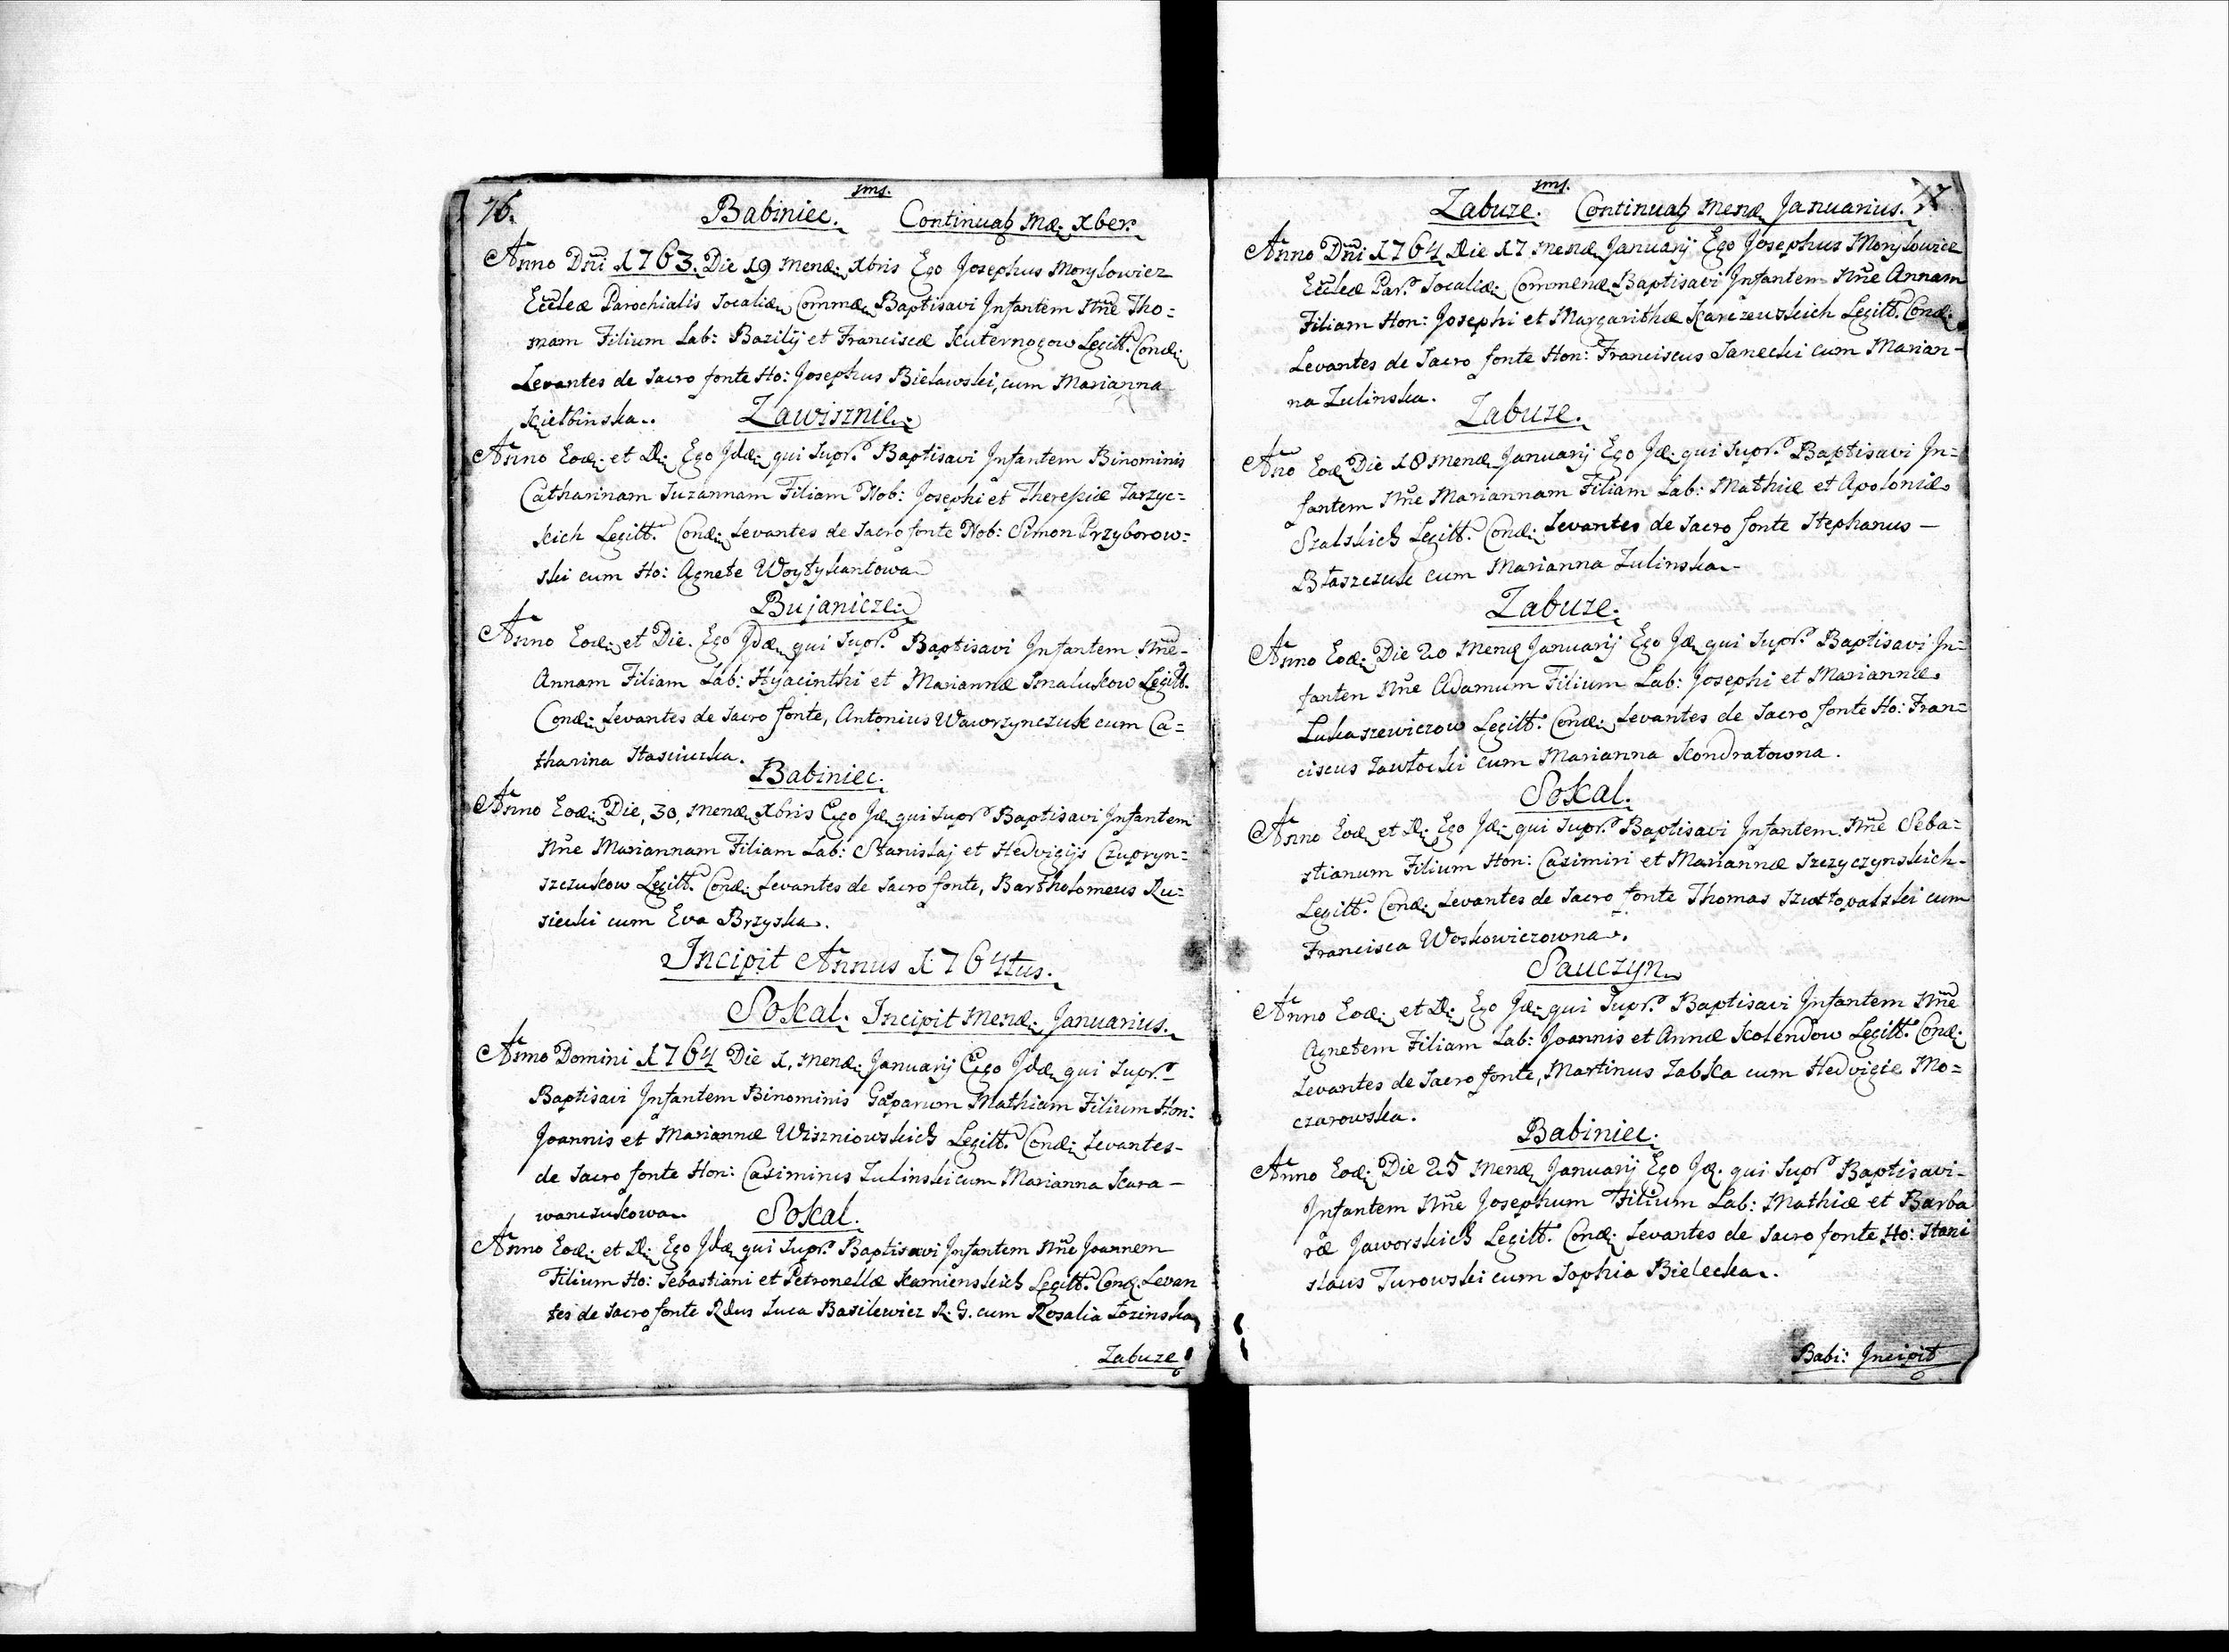 76.
jms.
Babiniec. Continuaɫ Mæ: Xber.
Anno Dn̄i 1763. Die 19 Mensæ: Xbris Ego Josephus Morylowicz
Eccl̄eæ Parochialis Socaliæ: Commæ: Baptisavi Infantem Nn̄e Tho=
mam Filium Lab: Bazilij et Franciscæ Kuternogow Legitt. Conæ:
Levantes de Sacro fonte Ho: Josephus Bielawski, cum Marianna
Kiełbinska.. Zawisznie.
Anno Eoæ: et D: Ego Jdæ: qui Supr. Baptisavi Infantem Binominis
Catharinam Suzannam Filiam Nob: Josephi et Theresiæ Tarzyc=
kich Legitt. Conæ: Levantes de Sacro fonte Nob: Simon Przyborow=
ski cum Ho: Agnete Woytykantowa
Bujanicze:
Anno Eoæ: et Die. Ego Jdæ: qui Supr. Baptisavi Infantem Nn̄e-
Annam Filiam Lab: Hyacinthi et Mariannæ Smalukow Legitt.
Conæ: Levantes de Sacro fonte, Antonius Wawrzynczuk cum Ca=
tharina Stasiucka.
Babiniec.
Anno Eoæ: Die, 30, Mensæ: Xbris Ego Jæ: qui Supr. Baptisavi Infantem
Nn̄e Mariannam Filiam Lab: Stanislaj et Hedvigijs Czupryn=
szczukow Legitt. Conæ: Levantes de Sacro fonte, Bartholomeus Ru=
siecki cum Eva Brzyska.
Incipit Annus 1764tus.
Sokal. Incipit Mensæ: Januarius.
Anno Domini 1764 Die 1, Mensæ: Januarij Ego Jdæ: qui Supr.
Baptisavi Infantem Binominis Gasparum Mathiam Filium Hon:
Joannis et Mariannæ Wiszniowskich Legitt. Conæ: Levantes-
de Sacro fonte Hon: Casimirus Zulinski cum Marianna Kara-
wanczukowa.. Sokal.
Anno Eoæ: et D: Ego Jdæ: qui Supr. Baptisavi Infantem Nn̄e Joannem
Filium Ho: Sebastiani et Petronellæ Kamienskich Legitt. Conæ. Levan
tes de Sacro fonte Rdus Luca Basilewicz R: G. cum Rosalia Łozinska
Zabuze
jms.
Zabuze. Continuaɫ Mensæ Januarius. 77
Anno Dn̄i 1764 Die 17 Mensæ Januarij Ego Josephus Morylowicz
Eccl̄eæ Par. Socaliæ: Commenæ: Baptisavi Infantem Nn̄e Annam
Filiam Hon: Josephi et Margarithæ Karczewskich Legitt. Conæ:
Levantes de Sacro fonte Hon: Franciscus Janecki cum Marian-
na Zulinska.
Zabuze.
An̄o Eoæ Die 18 Mensæ Januarij Ego Jæ: qui Supr. Baptisavi In=
fantem Nn̄e Mariannam Filiam Lab: Mathiæ et Apoloniæ
Szalskich Legitt. Conæ: Levantes de Sacro fonte Stephanus -
Błaszczuk cum Marianna Zulinska.-
Zabuze.
Anno Eoæ: Die 20 Mensæ Januarij Ego Jæ: qui Supr. Baptisavi In=
fanten Nn̄e Adamum Filium Lab: Josephi et Mariannæ
Lukaszewiczow Legitt. Conæ: Levantes de Sacro fonte Ho: Fran=
ciscus Zawłocki cum Marianna Kondratowna.
Sokal.
Anno Eoæ et D: Ego Jæ: qui Supr. Baptisavi Infantem Nn̄e Seba=
stianum Filium Hon: Casimiri et Mariannæ Szczyczynskich-
Legitt. Conæ: Levantes de Sacro fonte Thomas cum
Francisca Woskowiczowna.
Sauczyn.
Anno Eoæ: et D: Ego Jæ: qui Supr. Baptisavi Infantem Nn̄e
Agnetem Filiam Lab: Joannis et Annæ Kolendow Legitt. Conæ:
Levantes de Sacro fonte, Martinus Zabka cum Hedvigie Mo=
czarowska.
Babiniec.
Anno Eoæ: Die 25 Mensæ Januarij Ego Jæ. qui Supr. Baptisavi-
Infantem Nn̄e Josephum Filium Lab: Mathiæ et Barba
ræ Jaworskich Legitt. Conæ: Levantes de Sacro fonte Ho: Stani
slaus Turowski cum Sophia Bielecka.
Babi: Incipit